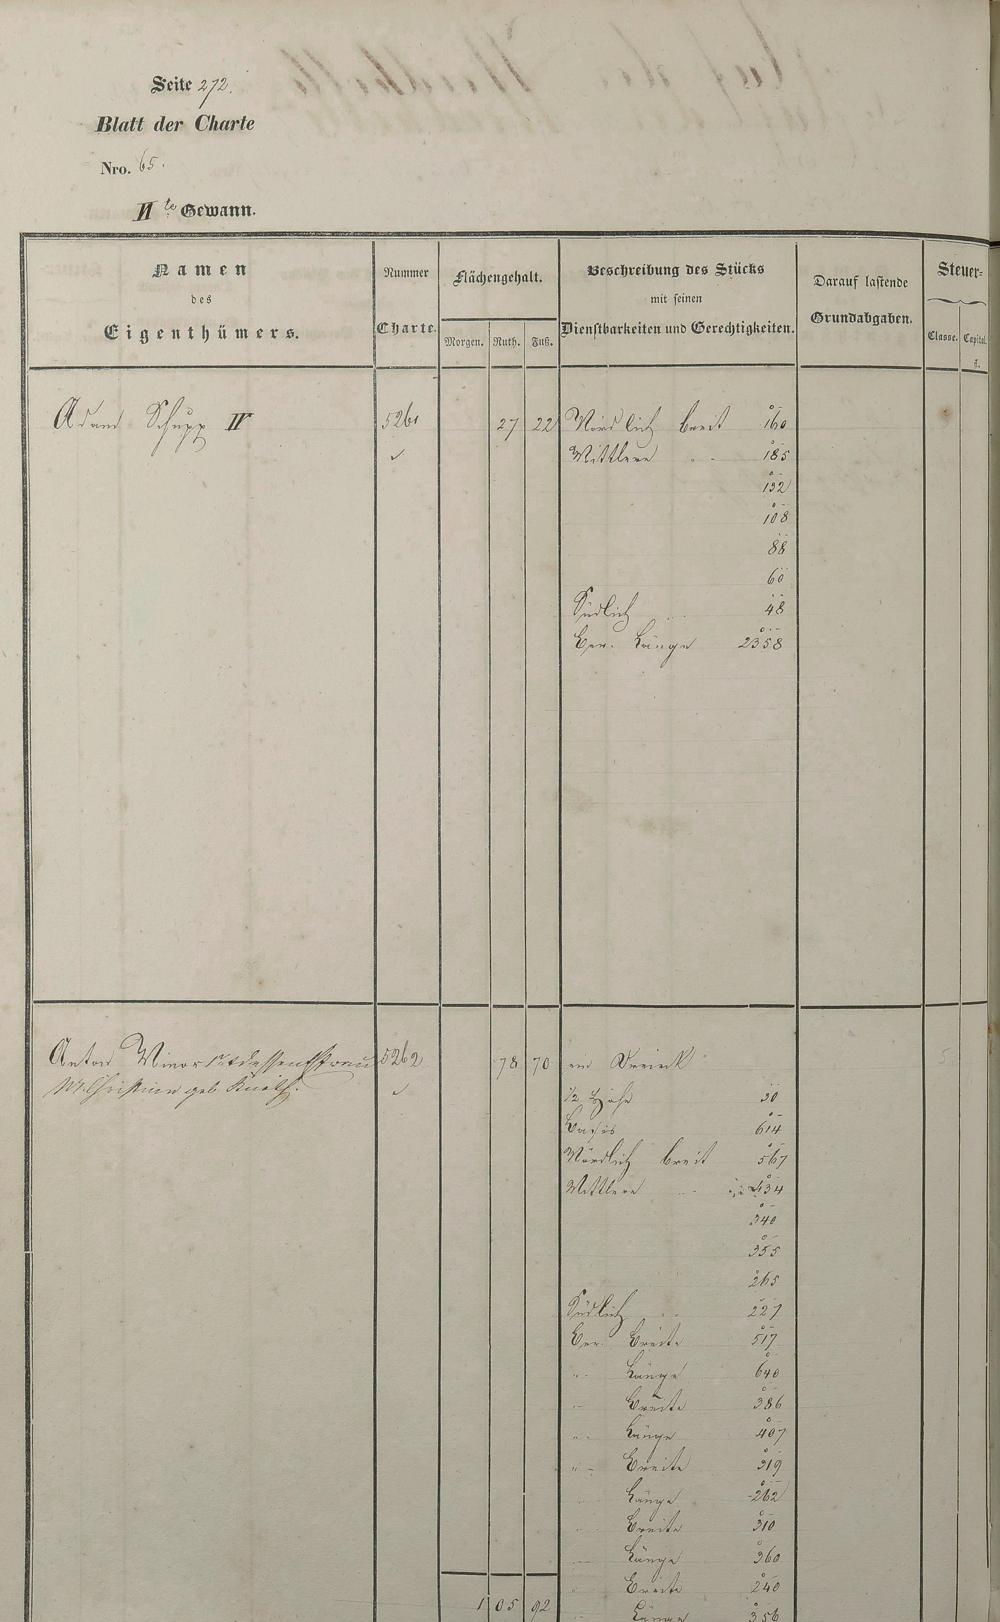 Seite 272.
Blatt der Charte
Nro. 65.
II te Gewann.
Namen
des
Eigenthümers.
Nummer
Charte.
Flächengehalt.
Morgen. Ruth. Fuß.
Beschreibung des Stücks
mit seinen
Dienstbarkeiten und Gerechtigkeiten.
Darauf lastende
Grundabgaben.
Steuer-
Classe. Capital.
fl.
Adam Schupp IV 5261 27 22 Nördlich breit 160
Mittlere 185
132
108
88
60
Südlich 48
Ber. Länge 2358
Anton 5262 78 70 ein Dreieck
M. Christina geb. 1/2 Höhe 30
Basis 614
Nördlich breit 567
Mittlere 434
340
355
265
Südlich 227
Ber. Breite 517
" Länge 640
" Breite 386
" Länge 407
" Breite 319
" Länge 262
" Breite 310
" Länge 360
" Breite 240
1 05 92 " Länge 356